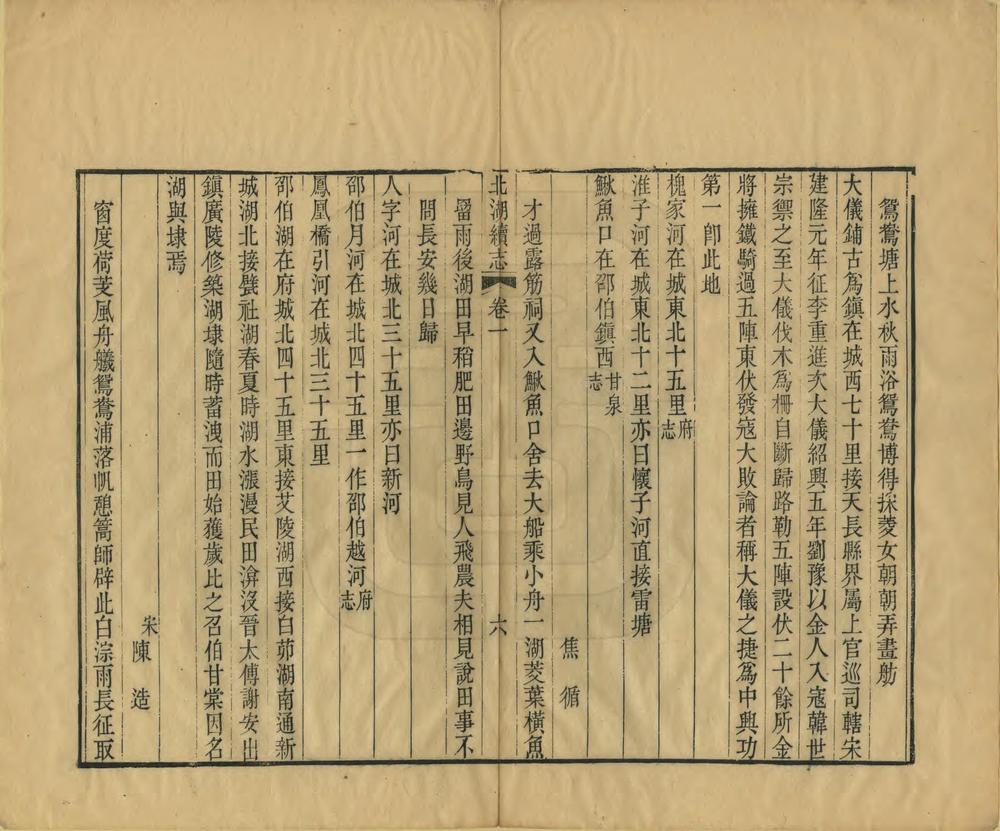 鴛鴦塘上水秋雨浴鴛鴦博得採菱女朝朝弄畫舫
大儀鋪古爲鎮在城西七十里接天長縣界屬上官巡司轄宋
建隆元年征李重進次大儀紹興五年劉豫以金人入寇韓世
崇禦之至大儀伐木爲柵自斷歸路勒五陣設伏二十餘所金
將擁鐵騎過五陣東伏發寇大敗論者稱大儀之捷爲中興功
第一卽此地
槐家河在城東北十五里府志
淮子河在城東北十二里亦曰懷子河直接雷塘
鰍魚口在邵伯鎮西甘泉志
焦循
才過露筋祠又入鰍魚口舍去大船乘小舟一湖菱葉橫魚
北湖續志 卷一 六
罶雨後湖田早稻肥田邊野鳥見人飛農夫相見說田事不
問長安幾日歸
人字河在城北三十五里亦曰新河
邵伯月河在城北四十五里一作邵伯越河府志
鳳凰橋引河在城北三十五里
邵伯湖在府城北四十五里東接艾陵湖西接白茆湖南通新
城湖北接甓社湖春夏時湖水漲漫民田渰沒晉太傅謝安出
鎮廣陵修築湖埭隨時蓄洩而田始獲歲比之召伯甘棠因名
湖與埭焉
宋陳造
窗度荷芰風舟艤鴛鴦浦落帆憩篙師辟此白淙雨長征取